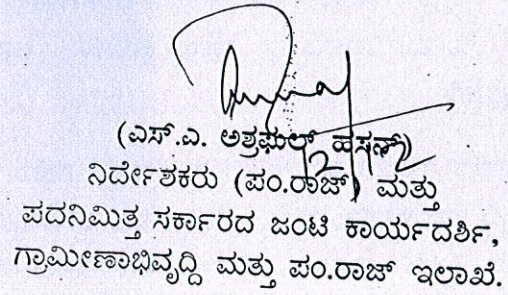 (ಎಸ್.ಎ. ಅಶ್ರಫುಲ್ ಹಸನ್)
ನಿರ್ದೇಶಕರು (ಪಂ.ರಾಜ್) ಮತ್ತು
ಪದನಿಮಿತ್ತ ಸರ್ಕಾರದ ಜಂಟಿ ಕಾರ್ಯದರ್ಶಿ,
ಗ್ರಾಮೀಣಾಭಿವೃದ್ಧಿ ಮತ್ತು ಪಂ.ರಾಜ್ ಇಲಾಖೆ.